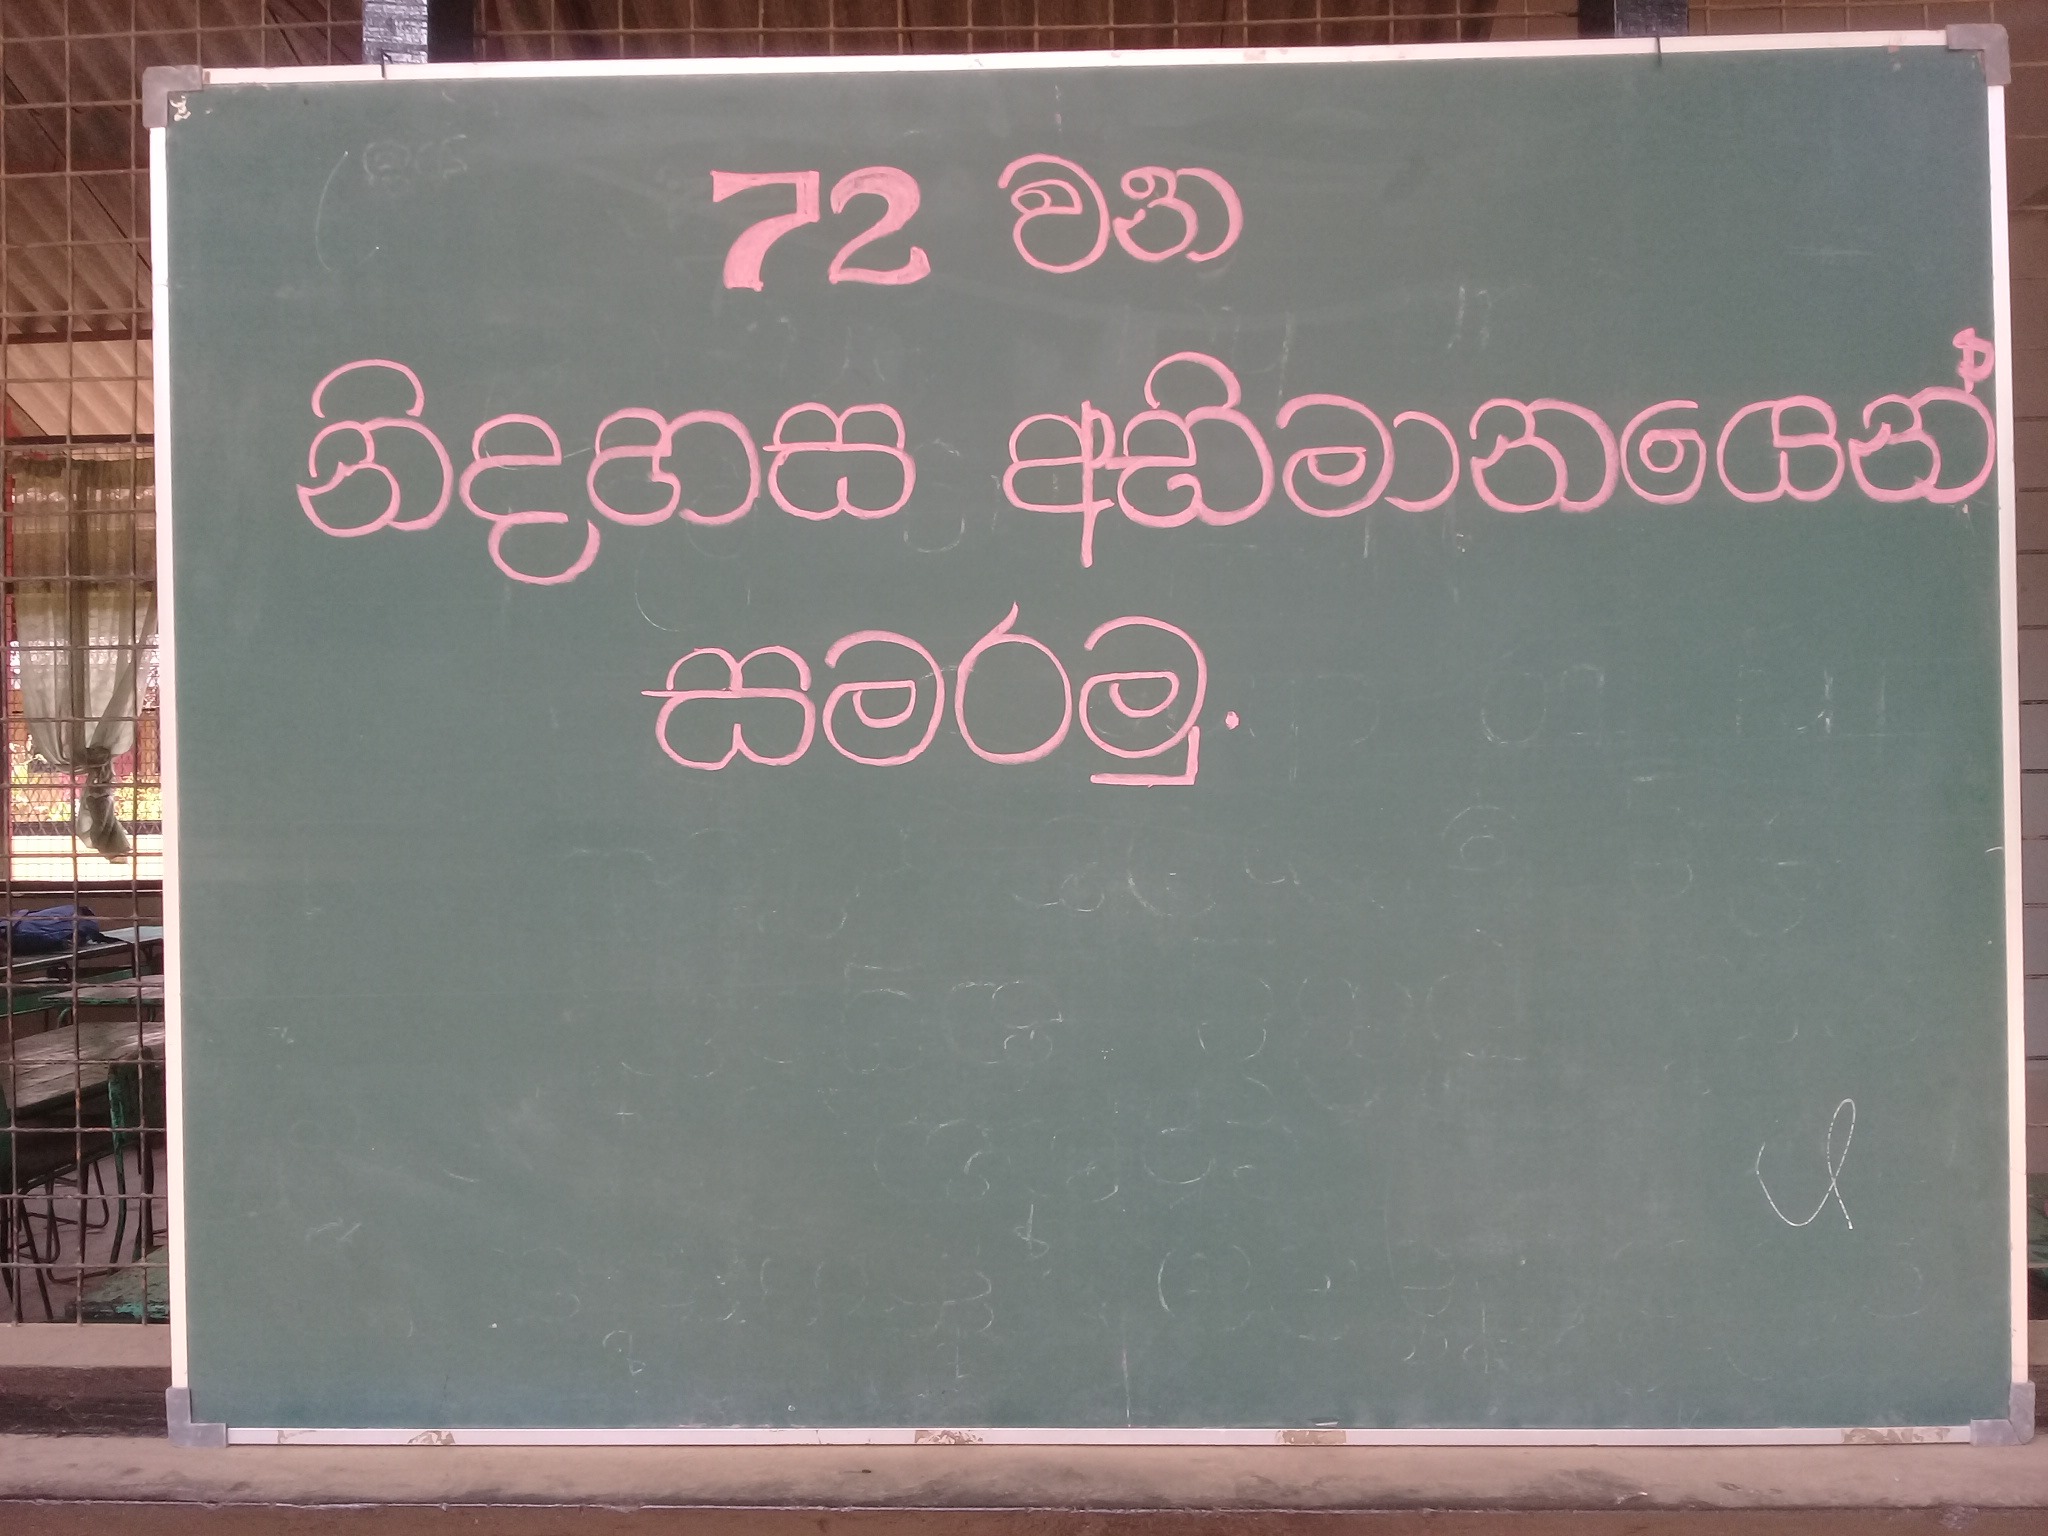 72 වන
නිදහස අභිමානයෙන්
සමරමු.